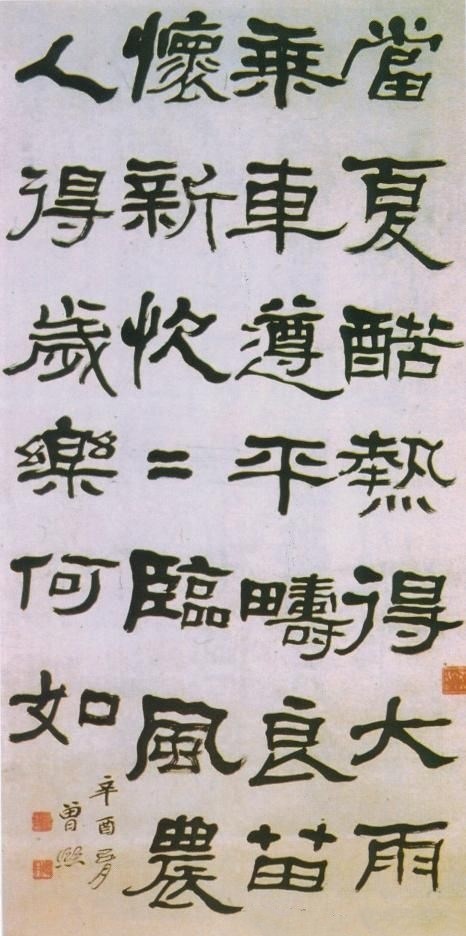 當夏酷熱得大雨
乘車遵平疇良苗
懷新忺=臨風農
人得歲樂何如
辛酉月
曾熙